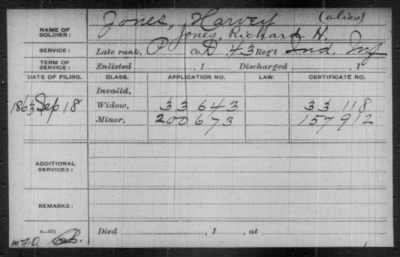 Jones, Harvey (alias)
NAME OF SOLDIER: Jones, Richard H.
SERVICE: Late rank, P Co. D 43 Reg't Ind. Inf
TERM OF SERVICE: Enlisted , 1 Discharged , 1
DATE OF FILING. CLASS. APPLICATION NO. LAW. CERTIFICATE NO.
Invalid,
1863 Sep 18 Widow, 33643 33118
Minor, 200673 157912
ADDITIONAL SERVICES:
REMARKS:
Died , 1 , at